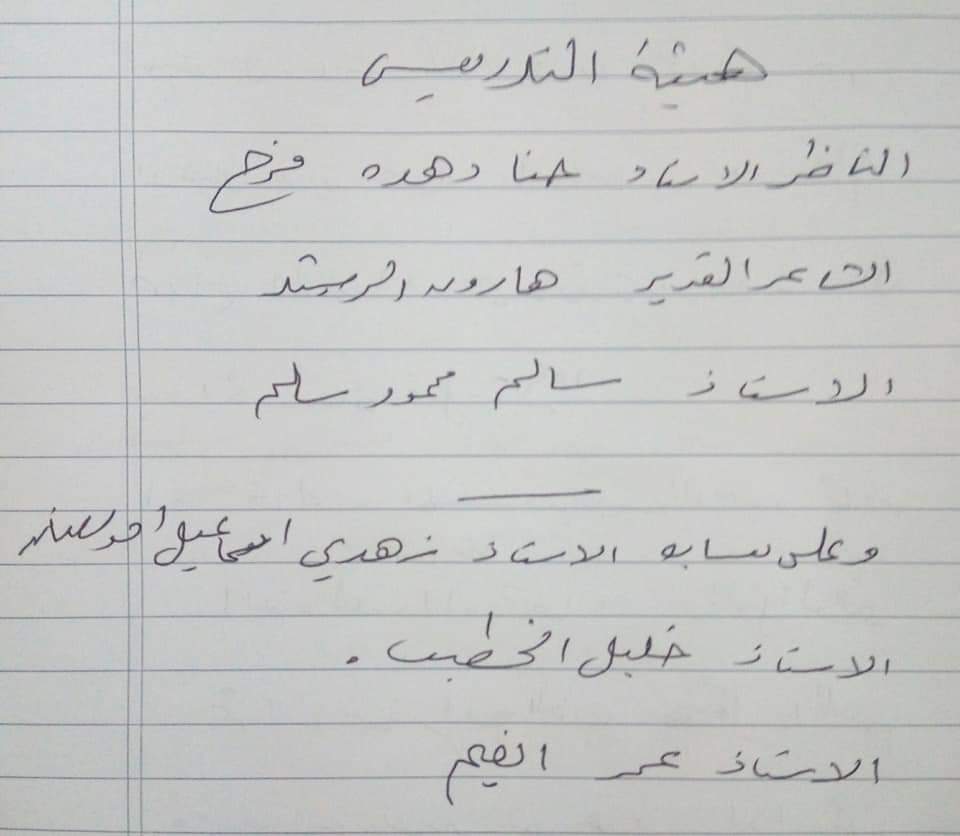 هيئة التدريس
الناظر الاستاذ حنا دهده فرح
الشاعر القدير هارون الرشيد
الاستاذ سالم محمود سالم
وعلى الاستاذ زهدي اسماعيل
الاستاذ خليل الخطيب .
الاستاذ عمر